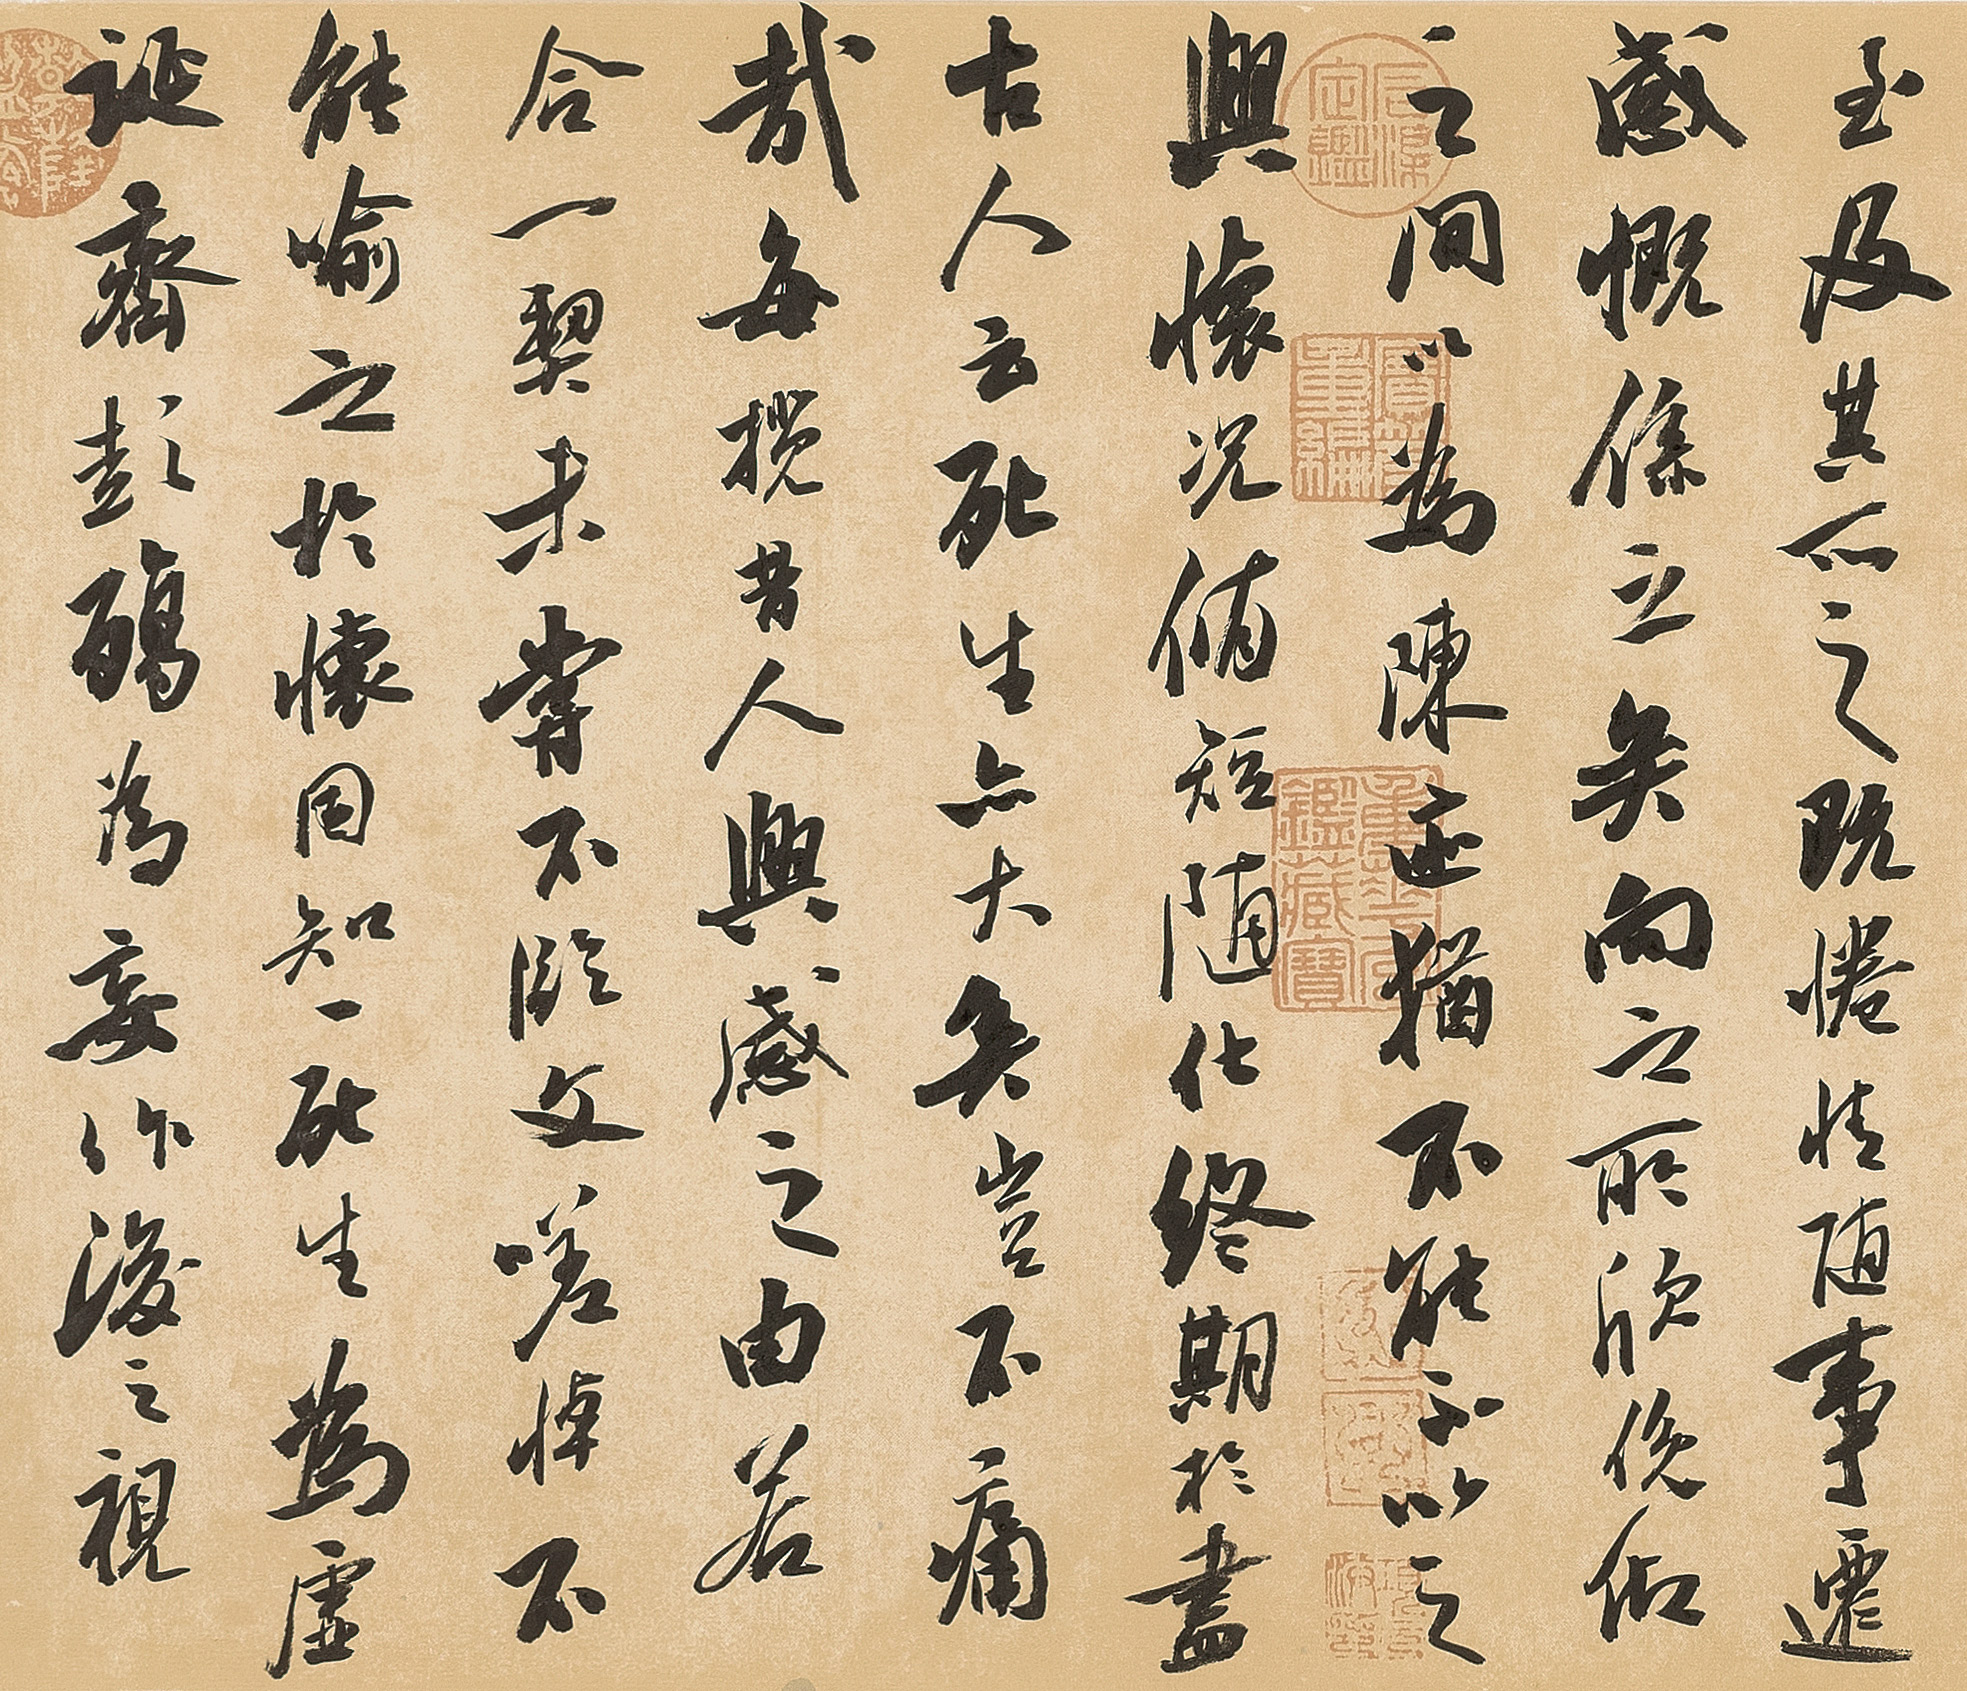 至及其所之既惓情随事遷
感慨係之矣向之所欣俛仰
之間以為陳迹猶不能不以之
興懷況脩短随化終期於盡
古人云死生亦大矣豈不痛
哉每攬昔人興感之由若
合一契未嘗不臨文嗟悼不
能喻之於懷固知一死生為虛
誕齊彭殤為妄作後之視
石渠定鑑
寶笈重編
重華宮鑑藏寶